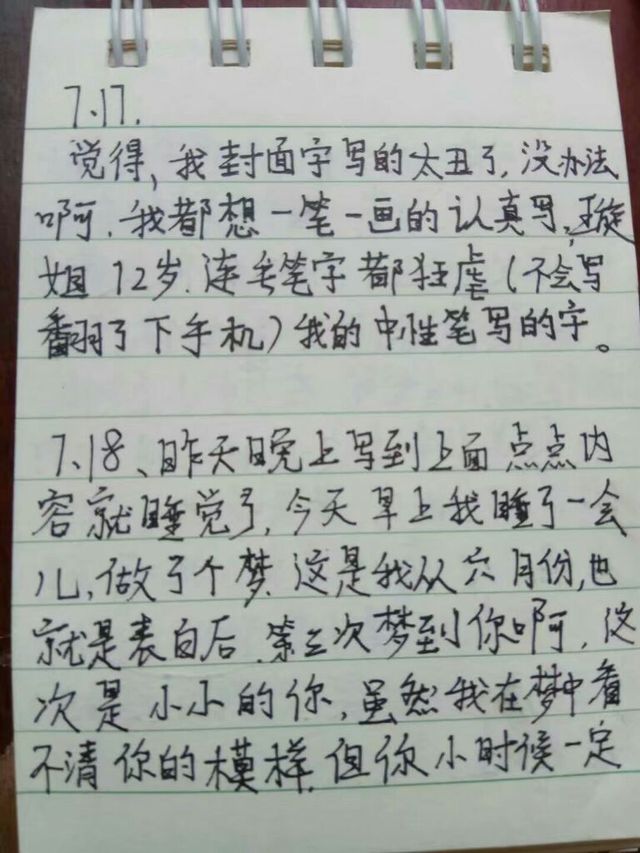 7.17.
觉得,我封面字写的太丑了,没办法
啊,我都想一笔一画的认真写,璇
姐12岁.连毛笔字都狂虐(不会写
翻了下手机)我的中性笔写的字。
7.18、昨天晚上写到上面点点内
容就睡觉了,今天早上我睡了一会
儿,做了个梦.这是我从六月份,也
就是表白后.第三次梦到你啊,这
次是小小的你,虽然我在梦中看
不清你的模样.但你小时候一定